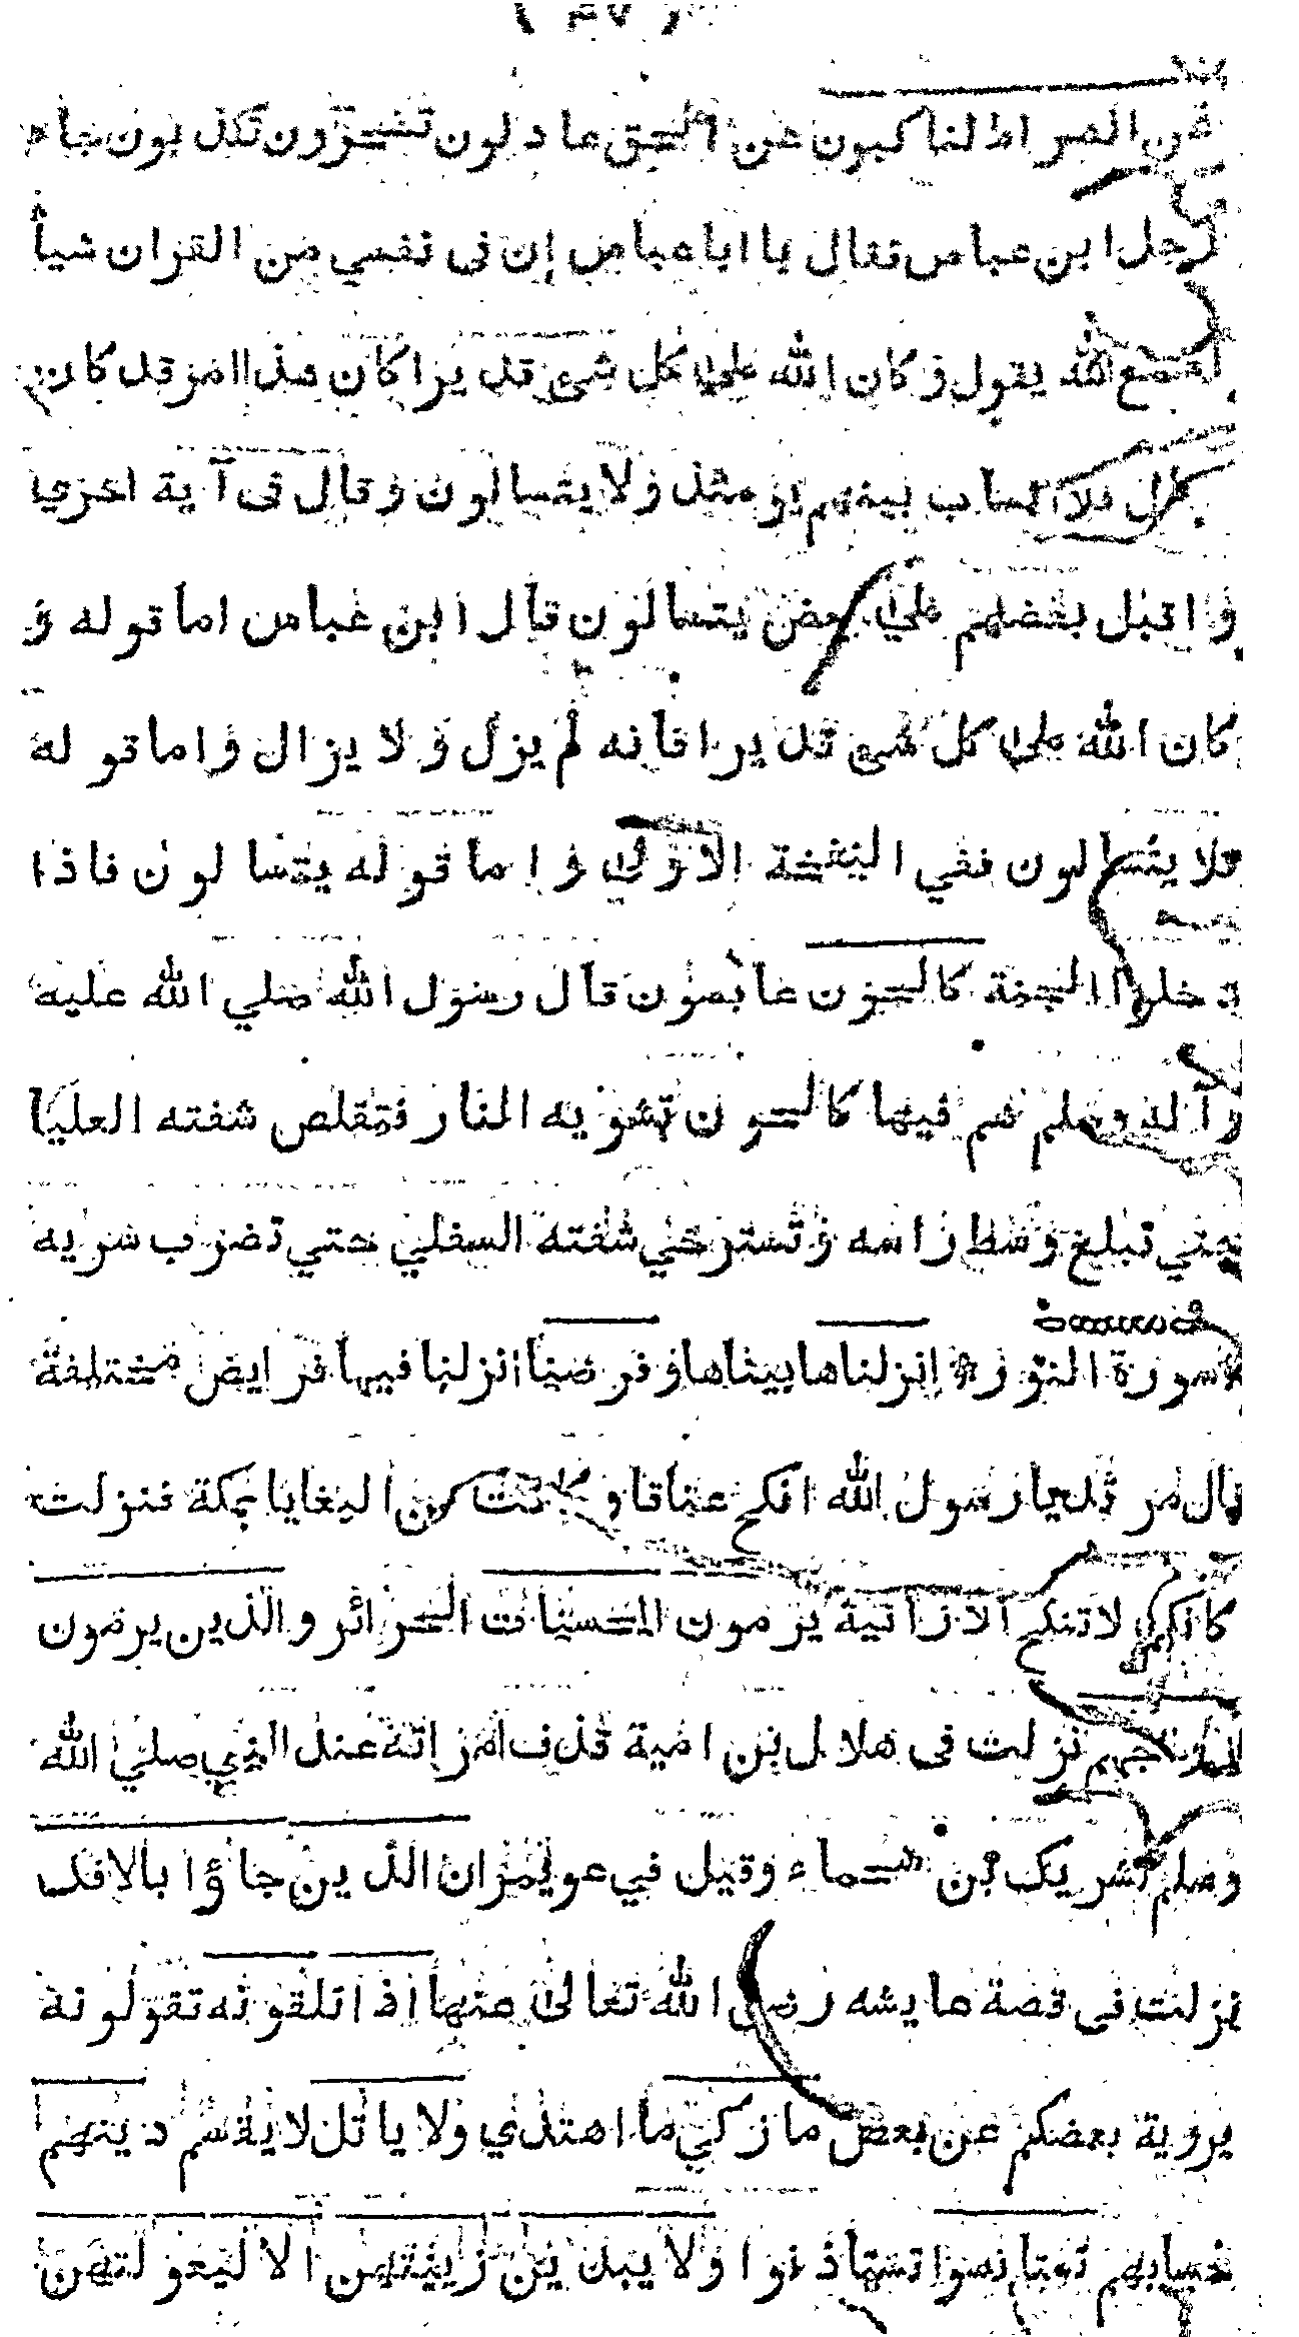 ( ٤٧ )
عن الصراط لناكبون عن الحق عادلون تسحرون تكذبون جاء
رجل ابن عباس فقال يا ابا عباس إن فى نفسي من القران شيأ
الله يقول وكان الله على كل شئ قديرا كان هذا امر قد كان
فلا انساب بينهم يومئذ ولا يتسالون وقال فى آية اخرى
واقبل بعضهم على بعض يتسالون قال ابن عباس اما قوله و
كان الله على كل شئ قديرا فانه لم يزل ولا يزال واما قوله
فلا يتسالون ففي النفخة الاولى واما قوله يتسالون فاذا
دخلوا الجنة كالحون عابسون قال رسول الله صلي الله عليه
وآله وسلم هم فيها كالحون تشويه النار فتقلص شفته العليا
حتي تبلغ وسط راسه وتسترخي شفته السفلي حتي تضرب سريه
سورة النور * انزلناها بيناها وفرضنا انزلنا فيها فرايض مختلفة
قال مرثد يا رسول الله انكح عناقا وكانت من البغايا بمكة فنزلت
لا تنكح الا زانية يرمون المحسنات الحرائر والذين يرمون
نزلت فى هلال بن امية قذف امراته عند النبي صلى الله
وسلم بشريك بن سحماء وقيل في عويمر ان الذين جاؤا بالافك
نزلت فى قصة عايشه رضي الله تعالى عنها اذ تلقونه تقولونه
يرويه بعضكم عن بعض ما زكي ما اهتدي ولا ياتل لا يقسم دينهم
حسابهم تستانسوا تستاذنوا ولا يبدين زينتهن الا لبعولتهن